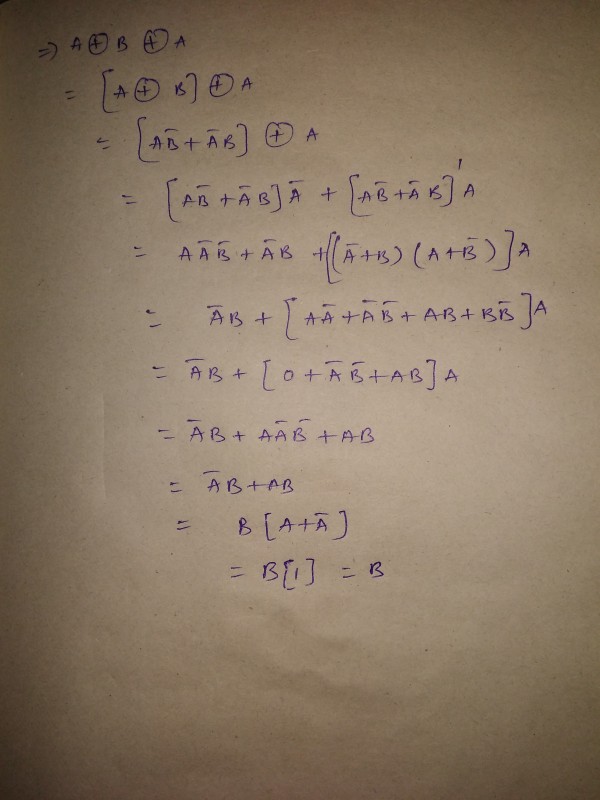 ⇒ A ⊕ B ⊕ A
= [A ⊕ B] ⊕ A
= [AB̅ + A̅B] ⊕ A
= [AB̅ + A̅B]A̅ + [AB̅ + A̅B]'A
= AA̅B̅ + A̅B + [(A̅+B)(A+B̅)]A
= A̅B + [AA̅ + A̅B̅ + AB + BB̅]A
= A̅B + [0 + A̅B̅ + AB]A
= A̅B + AA̅B̅ + AB
= A̅B + AB
= B[A + A̅]
= B[1] = B